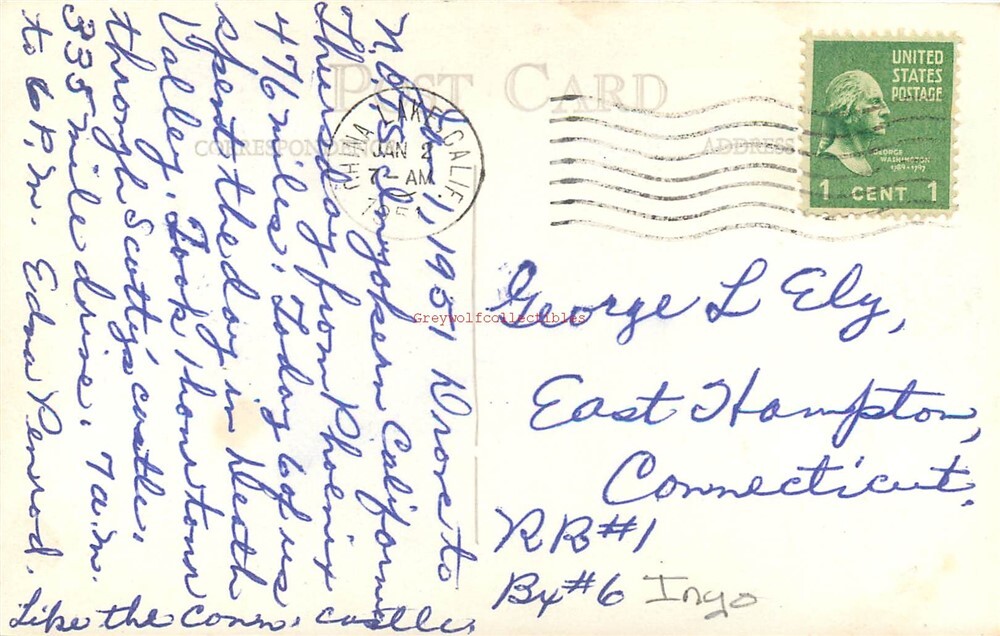 POST CARD
CORRESPONDENCE
ADDRESS
UNITED
STATES
POSTAGE
GEORGE
WASHINGTON
1789-1797
1 CENT 1
CHINA LAKE, CALIF
JAN 2
7-AM
1951
Jan 1, 1951 Drove to
N.O.T.S. Inyokern California
Thursday from Phoenix
476 miles. Today 6 of us
spent the day in Death
Valley. Took 1 hour tour
through Scotty's castle.
335 mile drive. 7 a.m.
to 6 P.m. Edna Penrod.
Like the Conn. castle.
George L Ely,
East Hampton,
Connecticut.
RR#1
Bx#6 Inyo
Greywolfcollectibles